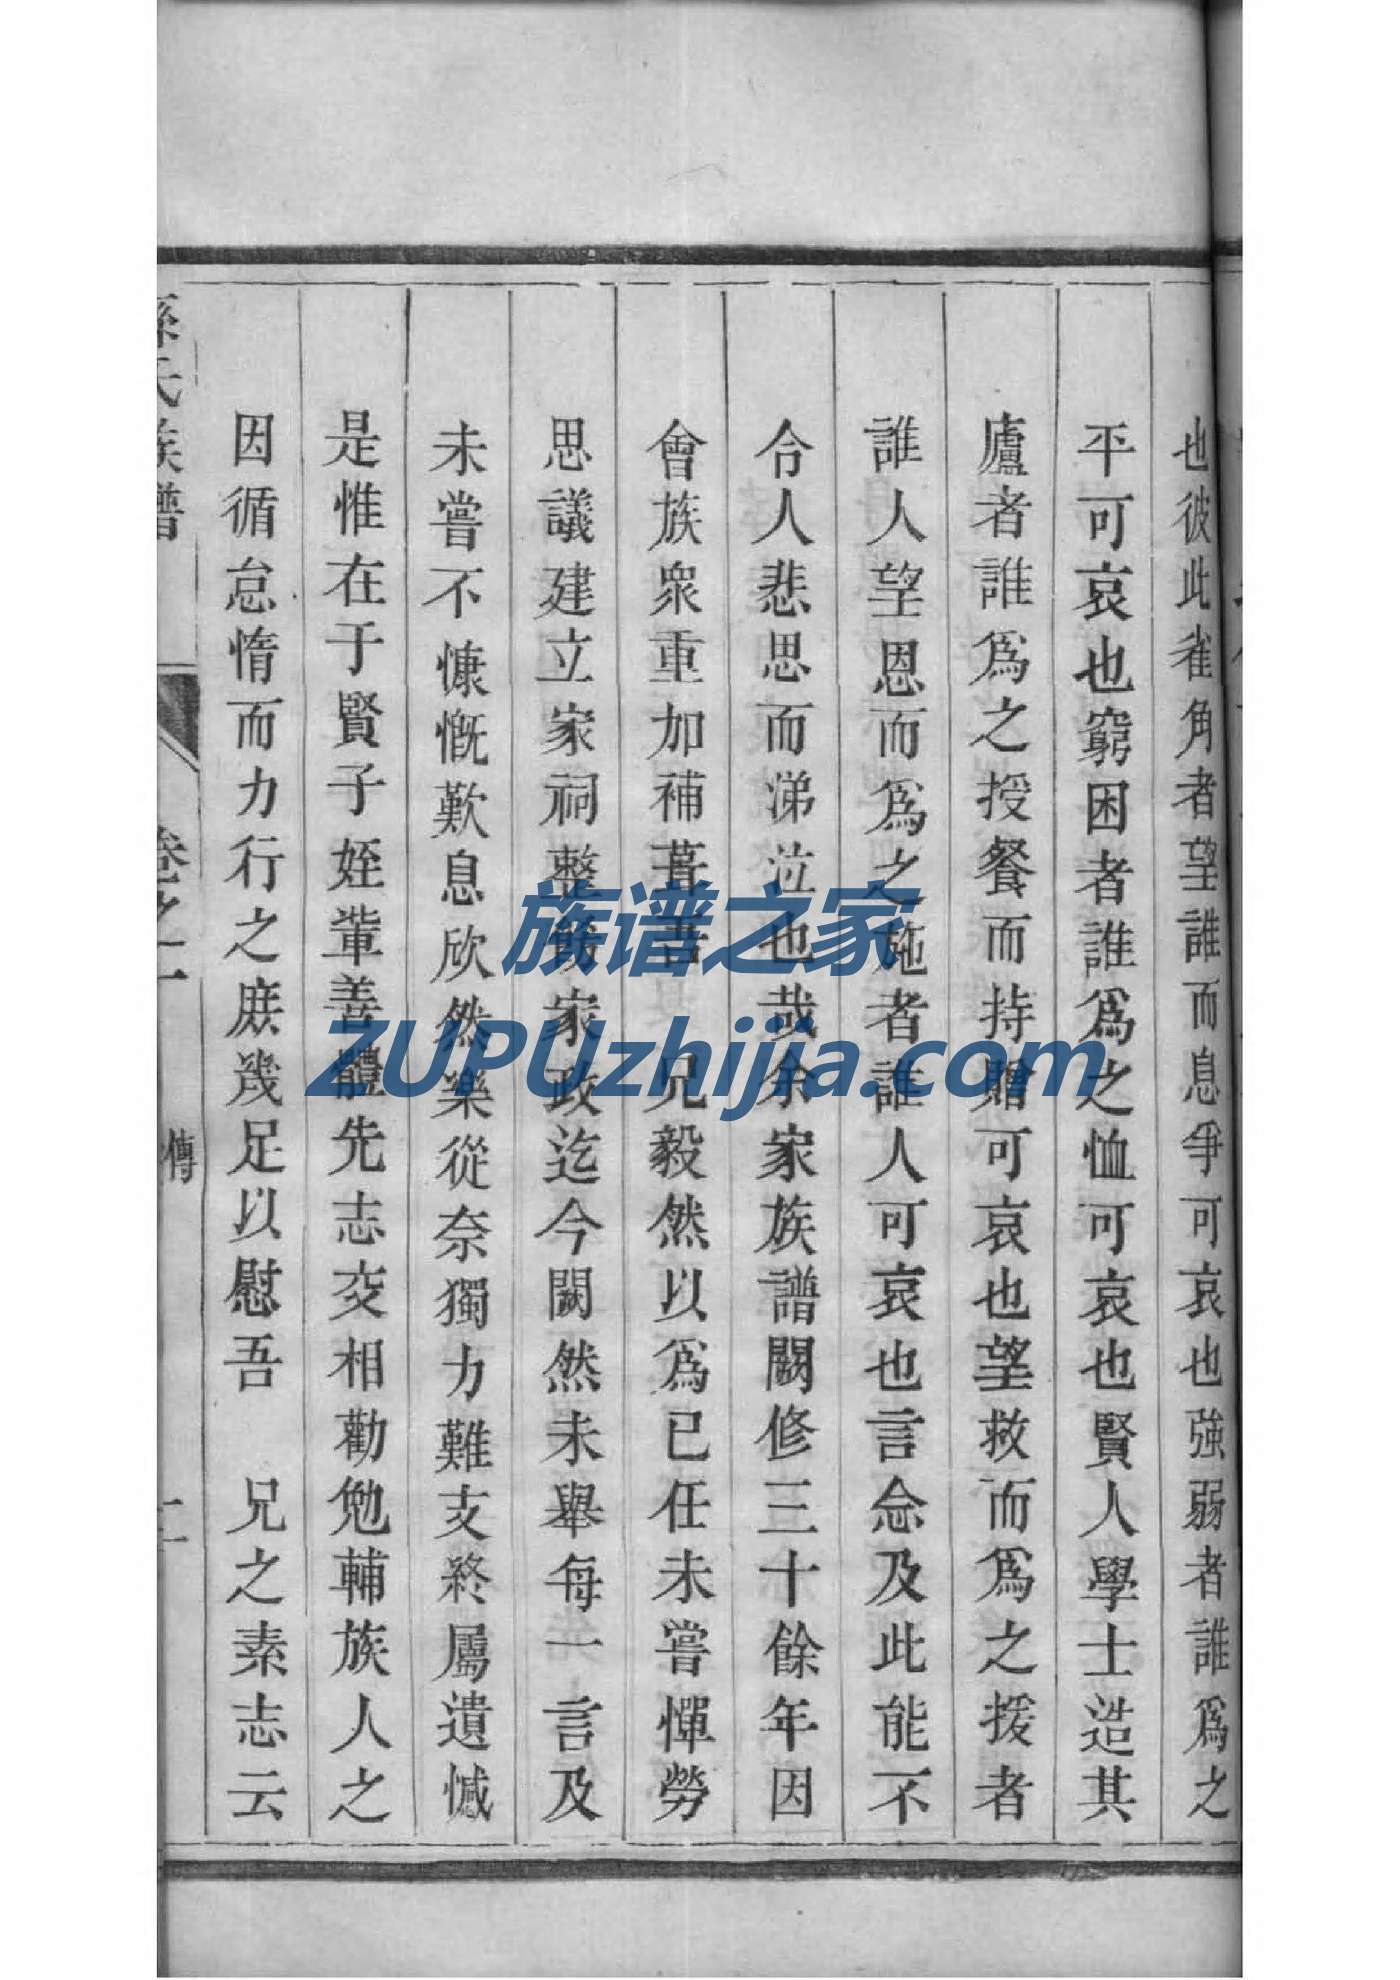 也彼此雀角者望誰而息爭可哀也強弱者誰爲之
平可哀也窮困者誰爲之恤可哀也賢人學士造其
廬者誰爲之授餐而持贈可哀也望救而爲之援者
誰人望恩而爲之施者誰人可哀也言念及此能不
令人悲思而涕泣也哉余家族譜闕修三十餘年因
會族衆重加補葺吾 兄毅然以爲已任未嘗憚勞
思議建立家祠整飭家政迄今闕然未舉每一言及
未嘗不慷慨歎息欣然樂從奈獨力難支終屬遺憾
是惟在于賢子姪輩善體先志交相勸勉輔族人之
因循怠惰而力行之庶幾足以慰吾 兄之素志云
孫氏族譜 卷之一 傳
族谱之家
ZUPUzhijia.com